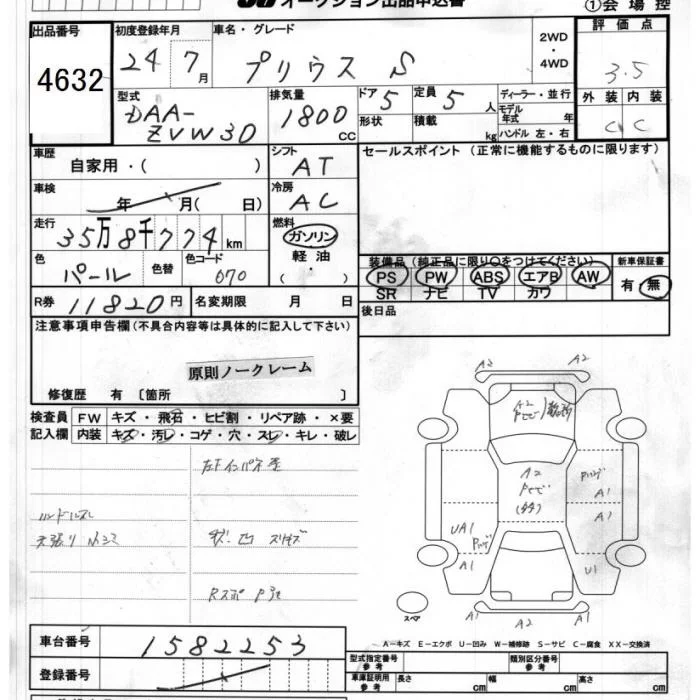 オークション出品申込書
①会場控
出品番号
4632
初度登録年月
24 7月
車名・グレード
プリウス S
2WD
・
4WD
評価点
3.5
外装 内装
C C
型式
DAA-
ZVW30
排気量
1800
CC
ドア 5
定員 5人
形状
積載 kg
ディーラー・並行
モデル
年式 年
ハンドル 左・右
車歴
自家用・( )
シフト
AT
セールスポイント (正常に機能するものに限ります)
車検
年 月( 日)
冷房
AC
走行
35万8千774km
燃料
ガソリン
軽油
・
( )
色
パール
色替
色コード
070
装備品 (純正品に限り○をつけてください)
PS PW ABS エアB AW
SR ナビ TV カワ
新車保証書
有・無
R券 11820円
名変期限 月 日
後日品
注意事項申告欄(不具合内容等は具体的に記入して下さい)
原則ノークレーム
修復歴 有 〔箇所 〕
検査員
記入欄
FW キズ・飛石・ヒビ割・リペア跡・×要
内装 キズ・汚レ・コゲ・穴・スレ・キレ・破レ
ハンドルスレ
天張り
キズ・凹 スリキズ
A2 A2
A2
A2
A1
A1
UA1
A1
U1
A2 A2
スペア
車台番号 1582253
登録番号
A-キズ E-エクボ U-凹み W-補修跡 S-サビ C-腐食 XX-交換済
型式指定番号
参考
類別区分番号
参考
車庫証明用
参考
長さ cm 幅 cm 高さ cm